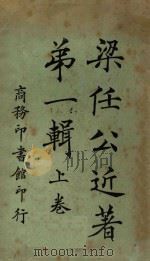 梁任公近著
第一輯 上卷
商務印書館印行
mtoou.info